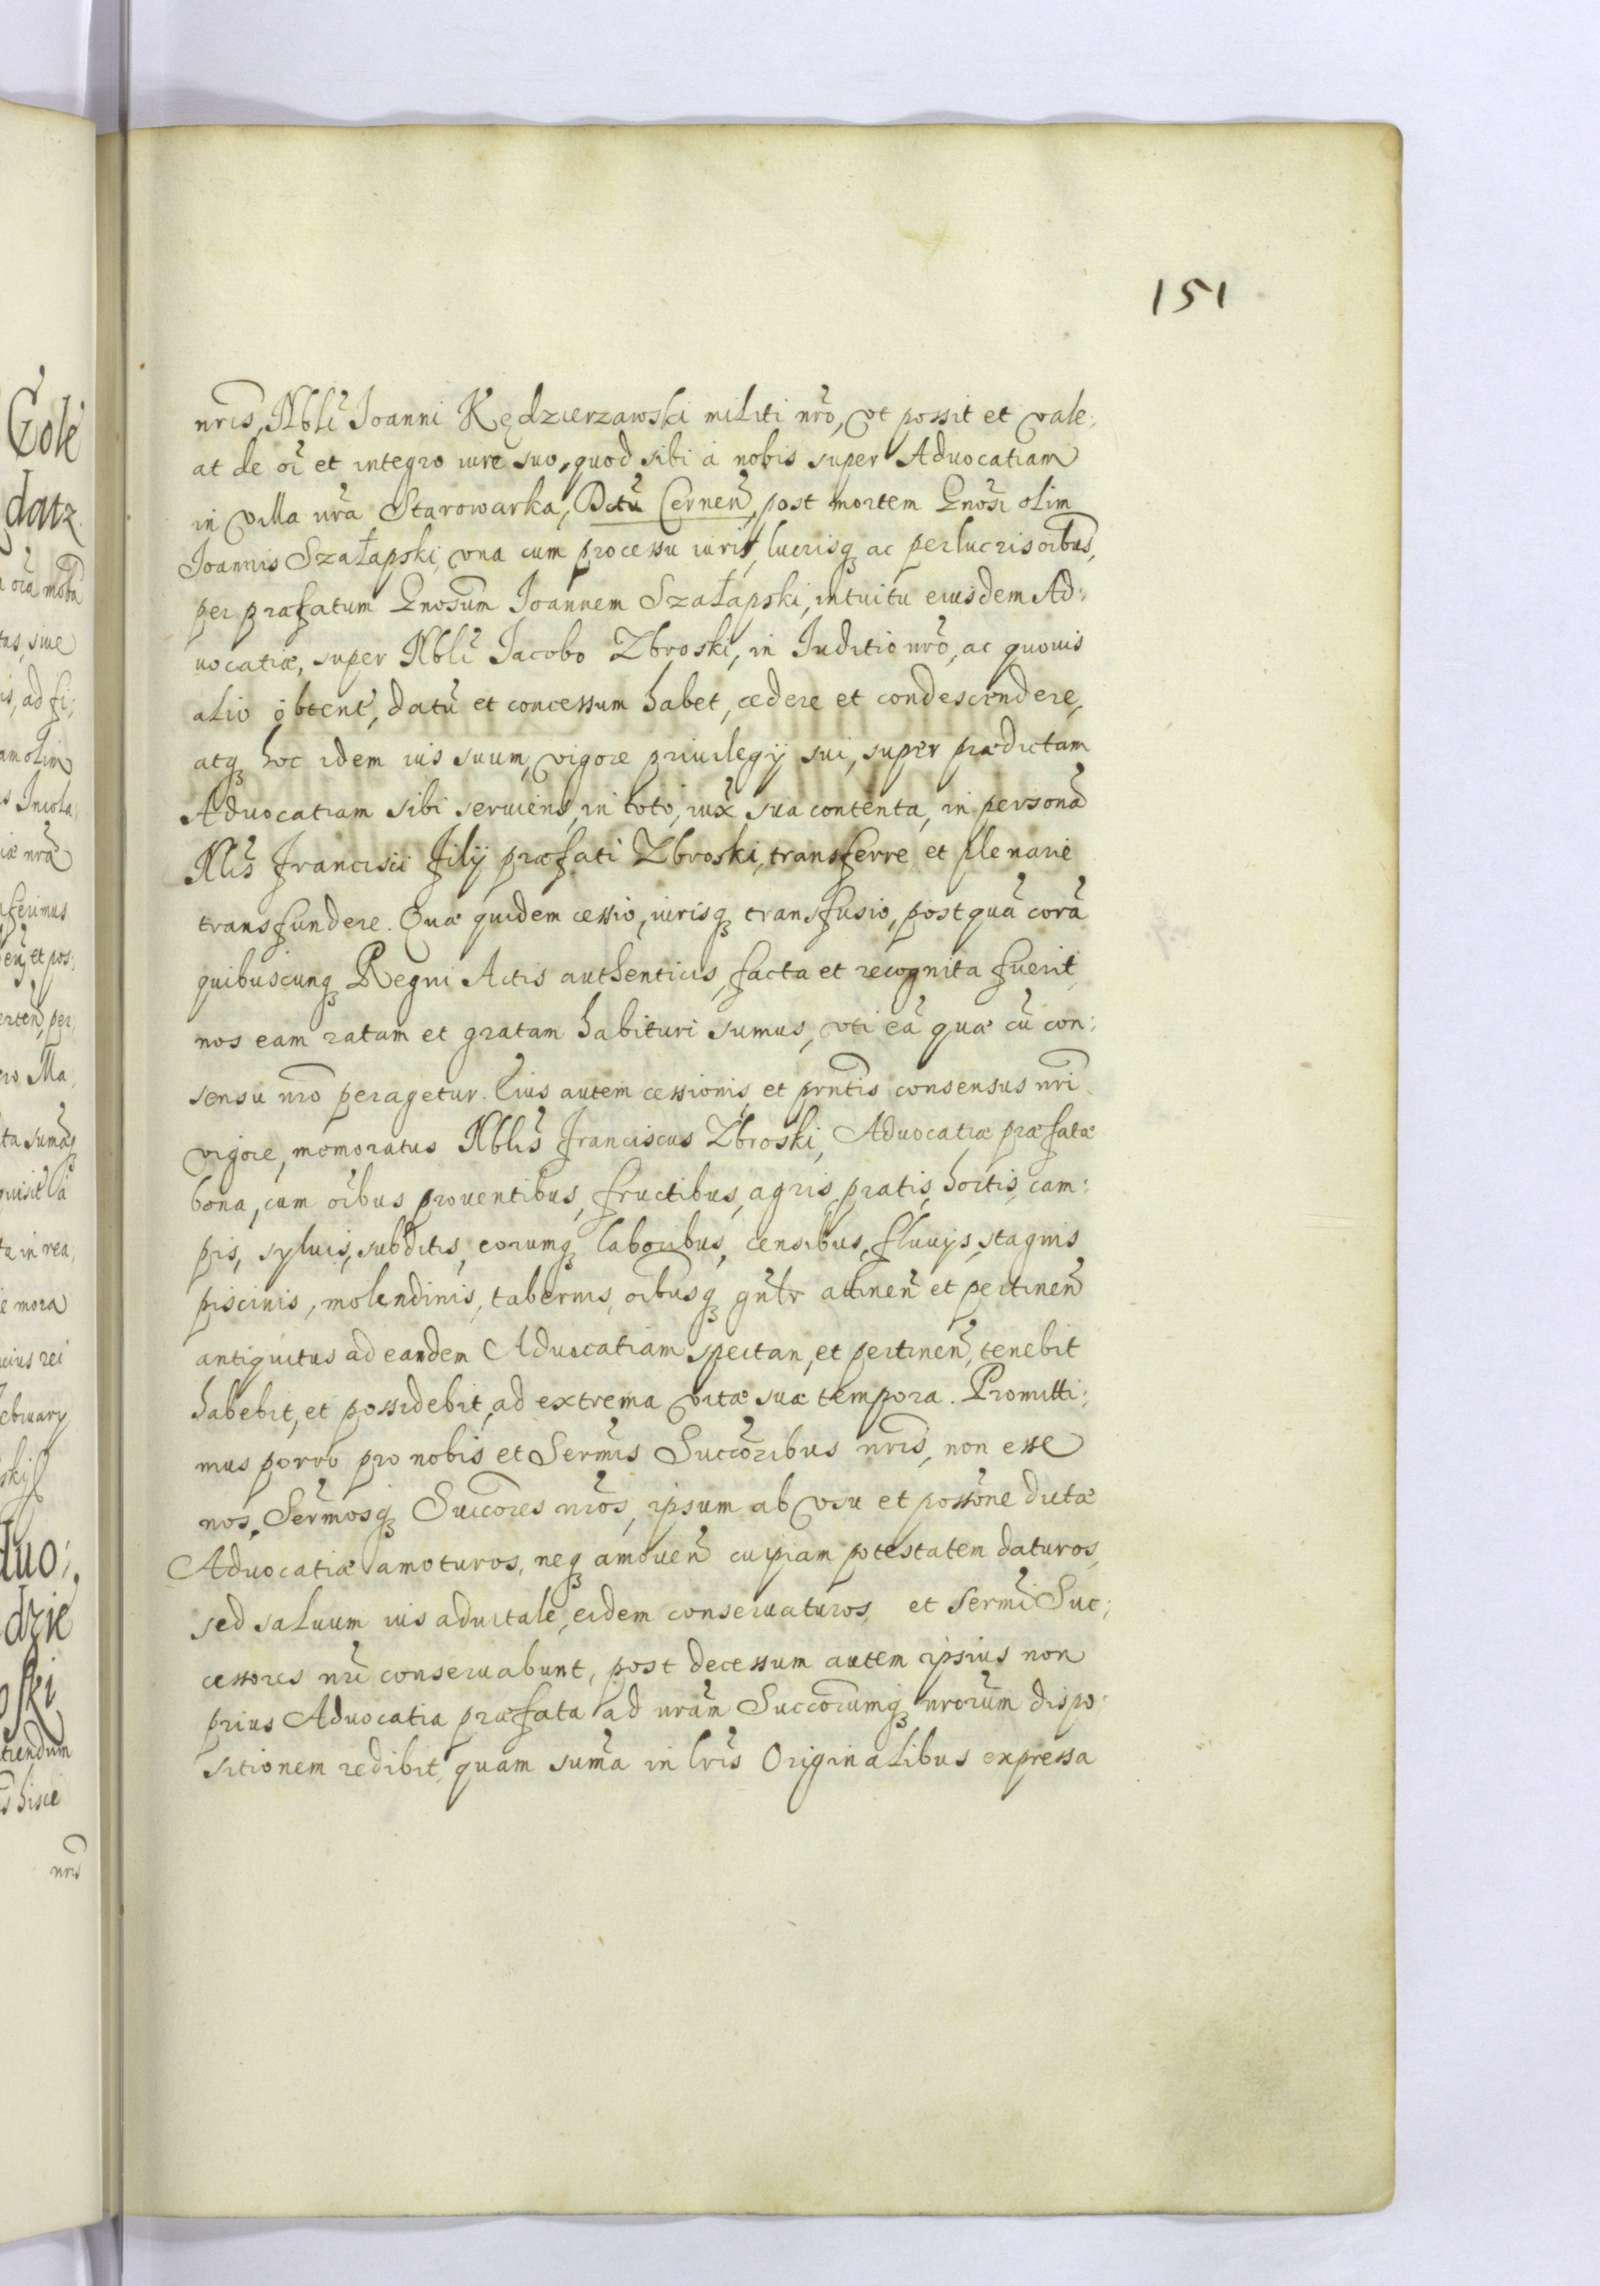 151
nris, Nbli Joanni Kędzierzawski militi nro, vt possit et vale:
at de oi et integro iure suo, quod sibi à nobis super Aduocatiam
in villa nra Starowarka, Dctu Cernen, post mortem Gnosi olim
Joannis Szałapski, vna cum processu iuris, lucrisq ac perlucris oibus,
per præfatum Gnosum Joannem Szałapski, intuitu eiusdem Ad:
uocatiæ, super Nbli Jacobo Zbroski, in Juditio nro, ac quouis
alio obtent, datu et concessum habet, cedere et condescendere,
atq hoc idem ius suum, vigore priuilegij sui, super prædictam
Aduocatiam sibi seruiens, in toto, iux sua contenta, in persona
Nlis Francisci filij præfati Zbroski, transferre et plenarie
transfundere. Quæ quidem cessio, iurisq transfusio, postqua cora
quibuscunq Regni Actis authenticis, facta et recognita fuerit,
nos eam ratam et gratam habituri sumus, vti ea quæ cu con:
sensu nro peragetur. Eius autem cessionis, et prntis consensus nri
vigore, momoratus Nblis Franciscus Zbroski, Aduocatiæ præfatæ
bona, cum oibus prouentibus, fructibus, agris, pratis, hortis, cam:
pis, syluis, subditis, eorumq laboribus, censibus, fluuijs, stagnis
piscinis, molendinis, tabernis, oibusq gnlr attinen et pertinen
antiquitus ad eandem Aduocatiam spectan, et pertinen, tenebit
habebit, et possidebit, ad extrema vitæ suæ tempora. Promitti:
mus porro pro nobis et Sermis Succoribus nris, non esse
nos, Sermosq Succores nros, ipsum ab vsu et possone dictæ
Aduocatiæ amoturos, neq amouen cuipiam potestatem daturos,
sed saluum ius aduitale, eidem conseruaturos, et Sermi Suc:
cessores nri conseruabunt, post decessum autem ipsius non
prius Aduocatia præfata ad nram Succorumq nrorum dispo:
sitionem redibit, quam suma in lris Originalibus expressa